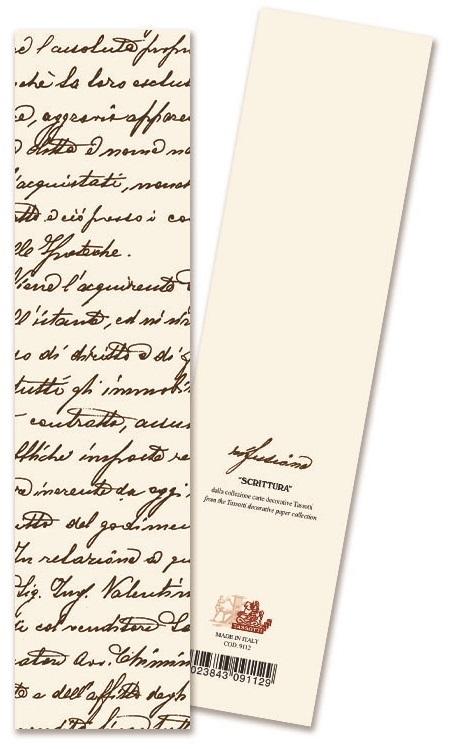 è l'assoluta propri
chè la loro esclus
e, aggravi appare
ditta è nome no
acquistati, nonch
e ciò presso i co
lle Ipoteche.
Viene l'acquirente
ll'istante, ed
o di diritto e di g
tutti gli immobi
contratto, assu
bliche imposte re
inerente da oggi
tto del godimen
In relazione a qu
Sig. Ing. Valentin
col venditore
Avv. Chimin
e dell'affitto degli
"SCRITTURA"
dalla collezione carte decorative Tassotti
from the Tassotti decorative paper collection
TASSOTTI
MADE IN ITALY
COD. 9112
023843 091129